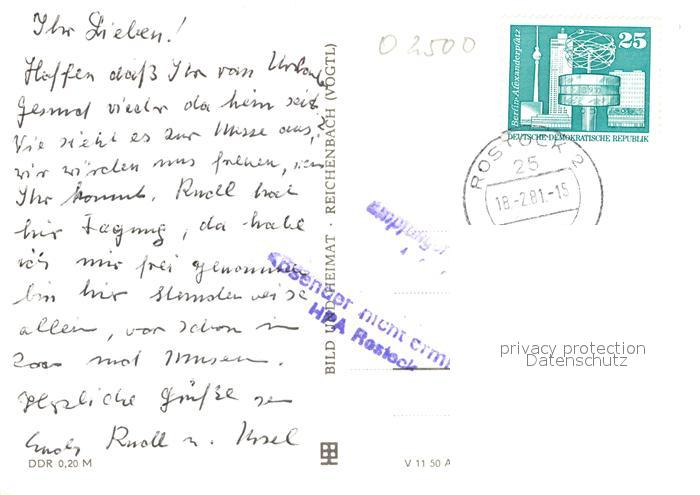 Ihr Lieben!
Hoffen daß Ihr vom Urlaub
gesund wieder da heim seit
Wie sieht es zur Messe aus,?
wir würden uns freuen,
Ihr kommt. Rudl hat
hir Tagung, da habe
ich mir frei genommen
bin hir stundenweise
allein, war schon in
Zoo und Museen.
Herzliche Grüße
Euch Rudl u. Ursel
DDR 0,20 M
BILD UND HEIMAT · REICHENBACH (VOGTL)
V 11 50 A
02500
25
Berlin-Alexanderplatz
DEUTSCHE DEMOKRATISCHE REPUBLIK
ROSTOCK 2
25
18.-2.81.-15
Empfänger
Absender nicht erm
HPA Rostock
privacy protection
Datenschutz